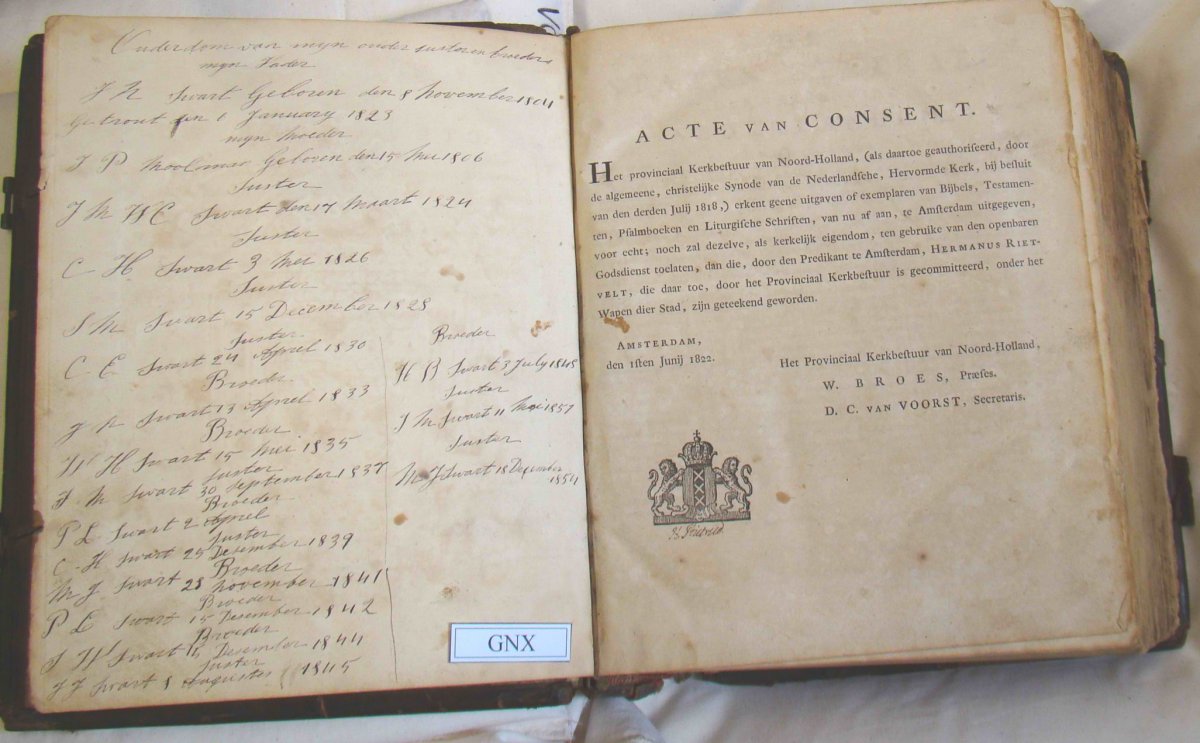 Ouderdom van myn ouder susteren broeders
myn Vader
J N Swart Geboren den 8 November 1801
Getrout den 1 January 1823
myn Moeder
J P Moolman Geboren den 15 Mei 1806
Suster
J M W C Swart den 17 Maart 1824
Suster
C H Swart 3 Mei 1826
Suster
S M Swart 15 December 1828
Suster
C E Swart 24 April 1830
Broeder
J N Swart 13 April 1833
Broeder
W H Swart 15 Mei 1835
Suster
F M Swart 30 September 1837
Broeder
P L Swart 2 April
Suster
C H Swart 25 Desember 1839
Broeder
M J Swart 28 November 1841
Broeder
P L Swart 15 Desember 1842
Broeder
S W Swart 15 Desember 1844
Suster
J J Swart 8 Augustes 1845
Broeder
H B Swart 3 July 1848
Suster
J M Swart 11 Mei 1851
Suster
M J Swart 18 December
1854
GNX
ACTE VAN CONSENT.
Het provinciaal Kerkbeſtuur van Noord-Holland, (als daartoe geauthoriſeerd, door
de algemeene, christelijke Synode van de Nederlandſche, Hervormde Kerk, bij beſluit
van den derden Julij 1818,) erkent geene uitgaven of exemplaren van Bijbels, Testamen-
ten, Pſalmboeken en Liturgiſche Schriften, van nu af aan, te Amſterdam uitgegeven,
voor echt; noch zal dezelve, als kerkelijk eigendom, ten gebruike van den openbaren
Godsdienst toelaten, dan die, door den Predikant te Amſterdam, HERMANUS RIET-
VELT, die daar toe, door het Provinciaal Kerkbeſtuur is gecommitteerd, onder het
Wapen dier Stad, zijn geteekend geworden.
AMSTERDAM,
den 1ſten Junij 1822.
Het Provinciaal Kerkbeſtuur van Noord-Holland,
W. BROES, Præſes.
D. C. VAN VOORST, Secretaris.